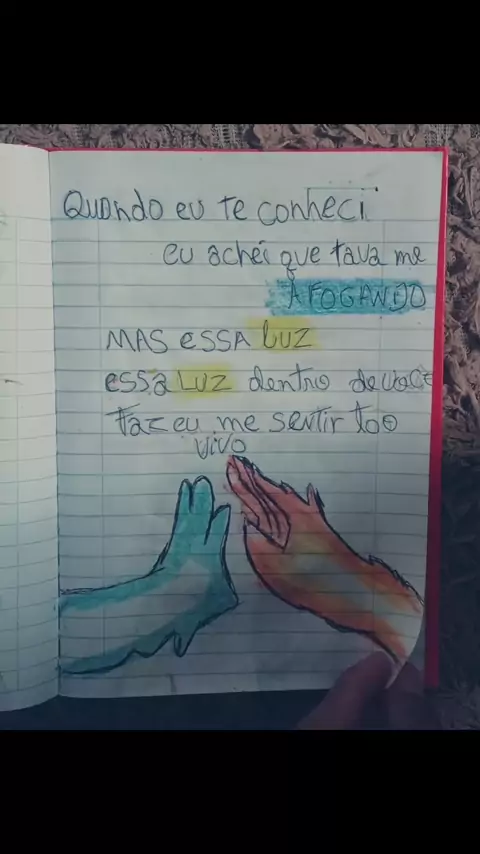 Quando eu te conheci
eu achei que tava me
AFOGANDO
MAS ESSA LUZ
essa LUZ dentro de você
faz eu me sentir tão
vivo